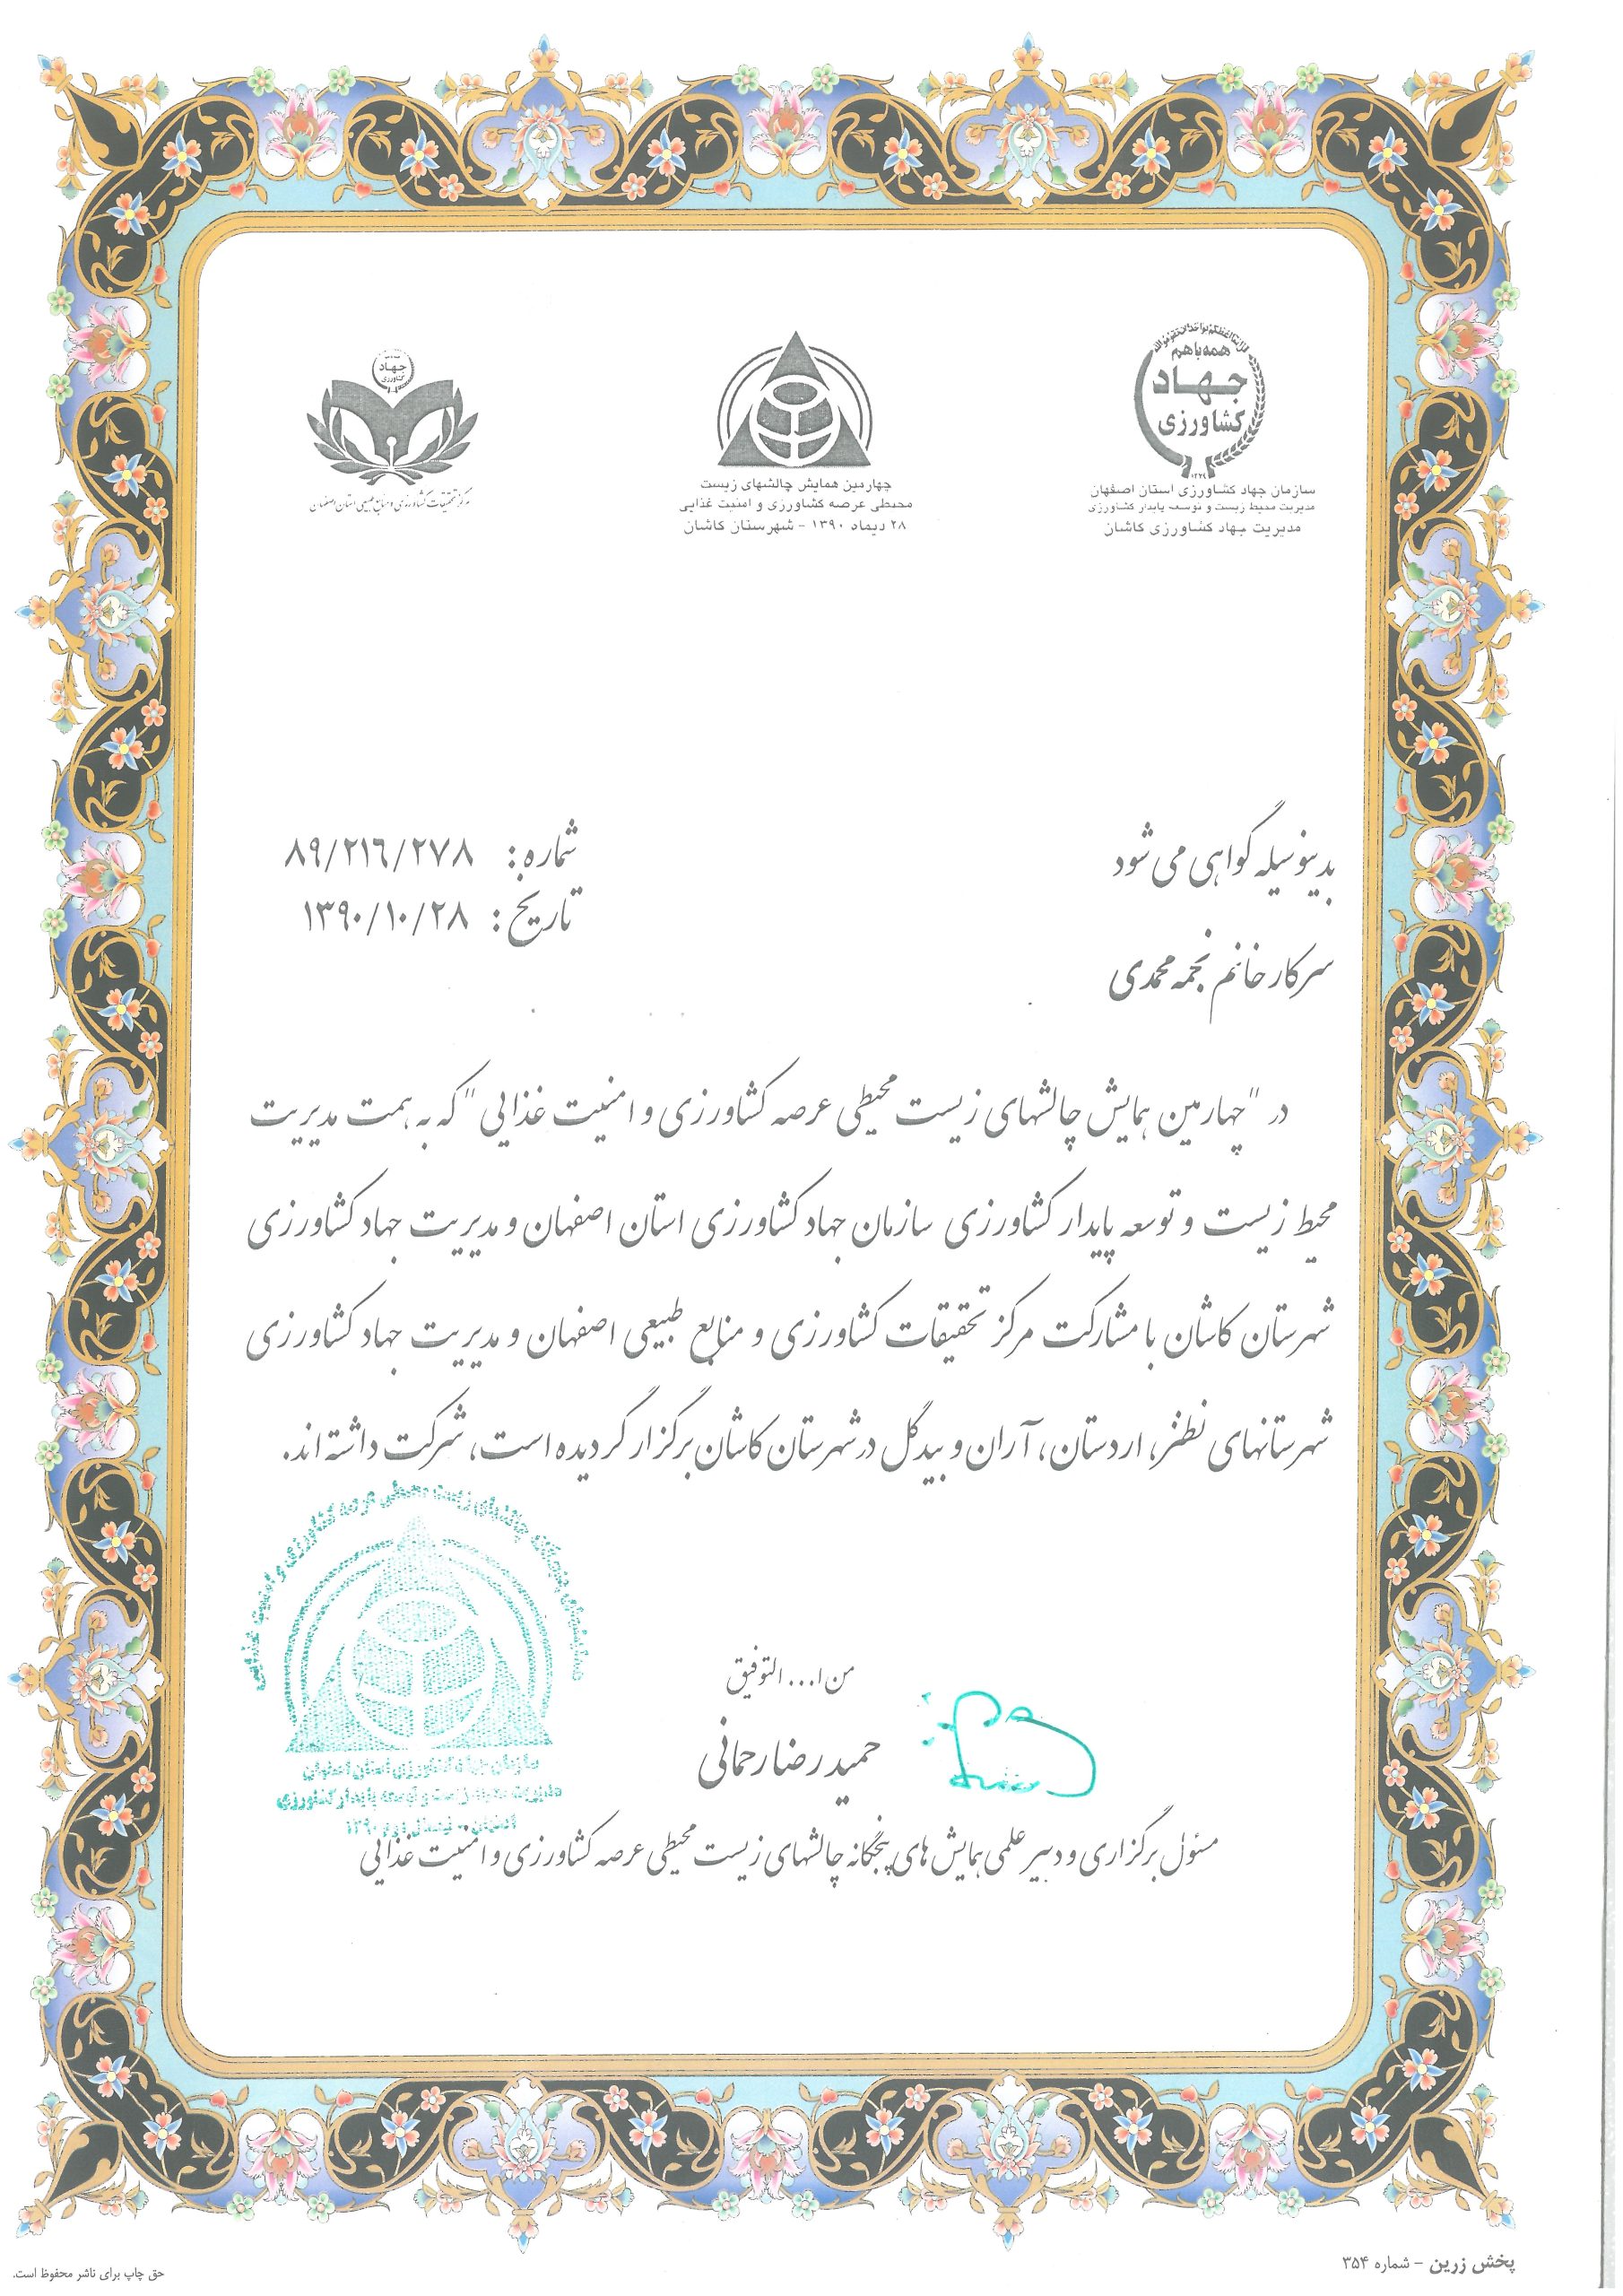 همه با هم
جهاد
کشاورزی
سازمان جهاد کشاورزی استان اصفهان
مدیریت محیط زیست و توسعه پایدار کشاورزی
مدیریت جهاد کشاورزی کاشان
چهارمین همایش چالشهای زیست
محیطی عرصه کشاورزی و امنیت غذایی
۲۸ دیماه ۱۳۹۰ - شهرستان کاشان
جهاد
کشاورزی
مرکز تحقیقات کشاورزی و منابع طبیعی استان اصفهان
بدینوسیله گواهی می شود
شماره: ۸۹/۲۱۶/۲۷۸
تاریخ: ۱۳۹۰/۱۰/۲۸
سرکار خانم نجمه محمدی
در "چهارمین همایش چالشهای زیست محیطی عرصه کشاورزی و امنیت غذایی" که به همت مدیریت
محیط زیست و توسعه پایدار کشاورزی سازمان جهاد کشاورزی استان اصفهان و مدیریت جهاد کشاورزی
شهرستان کاشان با مشارکت مرکز تحقیقات کشاورزی و منابع طبیعی اصفهان و مدیریت جهاد کشاورزی
شهرستانهای نطنز، اردستان، آران و بیدگل در شهرستان کاشان برگزار گردیده است، شرکت داشته اند.
من ا... التوفیق
حمیدرضا رحمانی
مسئول برگزاری و دبیر علمی همایش های پنجگانه چالشهای زیست محیطی عرصه کشاورزی و امنیت غذایی
سازمان جهاد کشاورزی استان اصفهان
مدیریت محیط زیست و توسعه پایدار کشاورزی
پخش زرین - شماره ۳۵۴
حق چاپ برای ناشر محفوظ است.